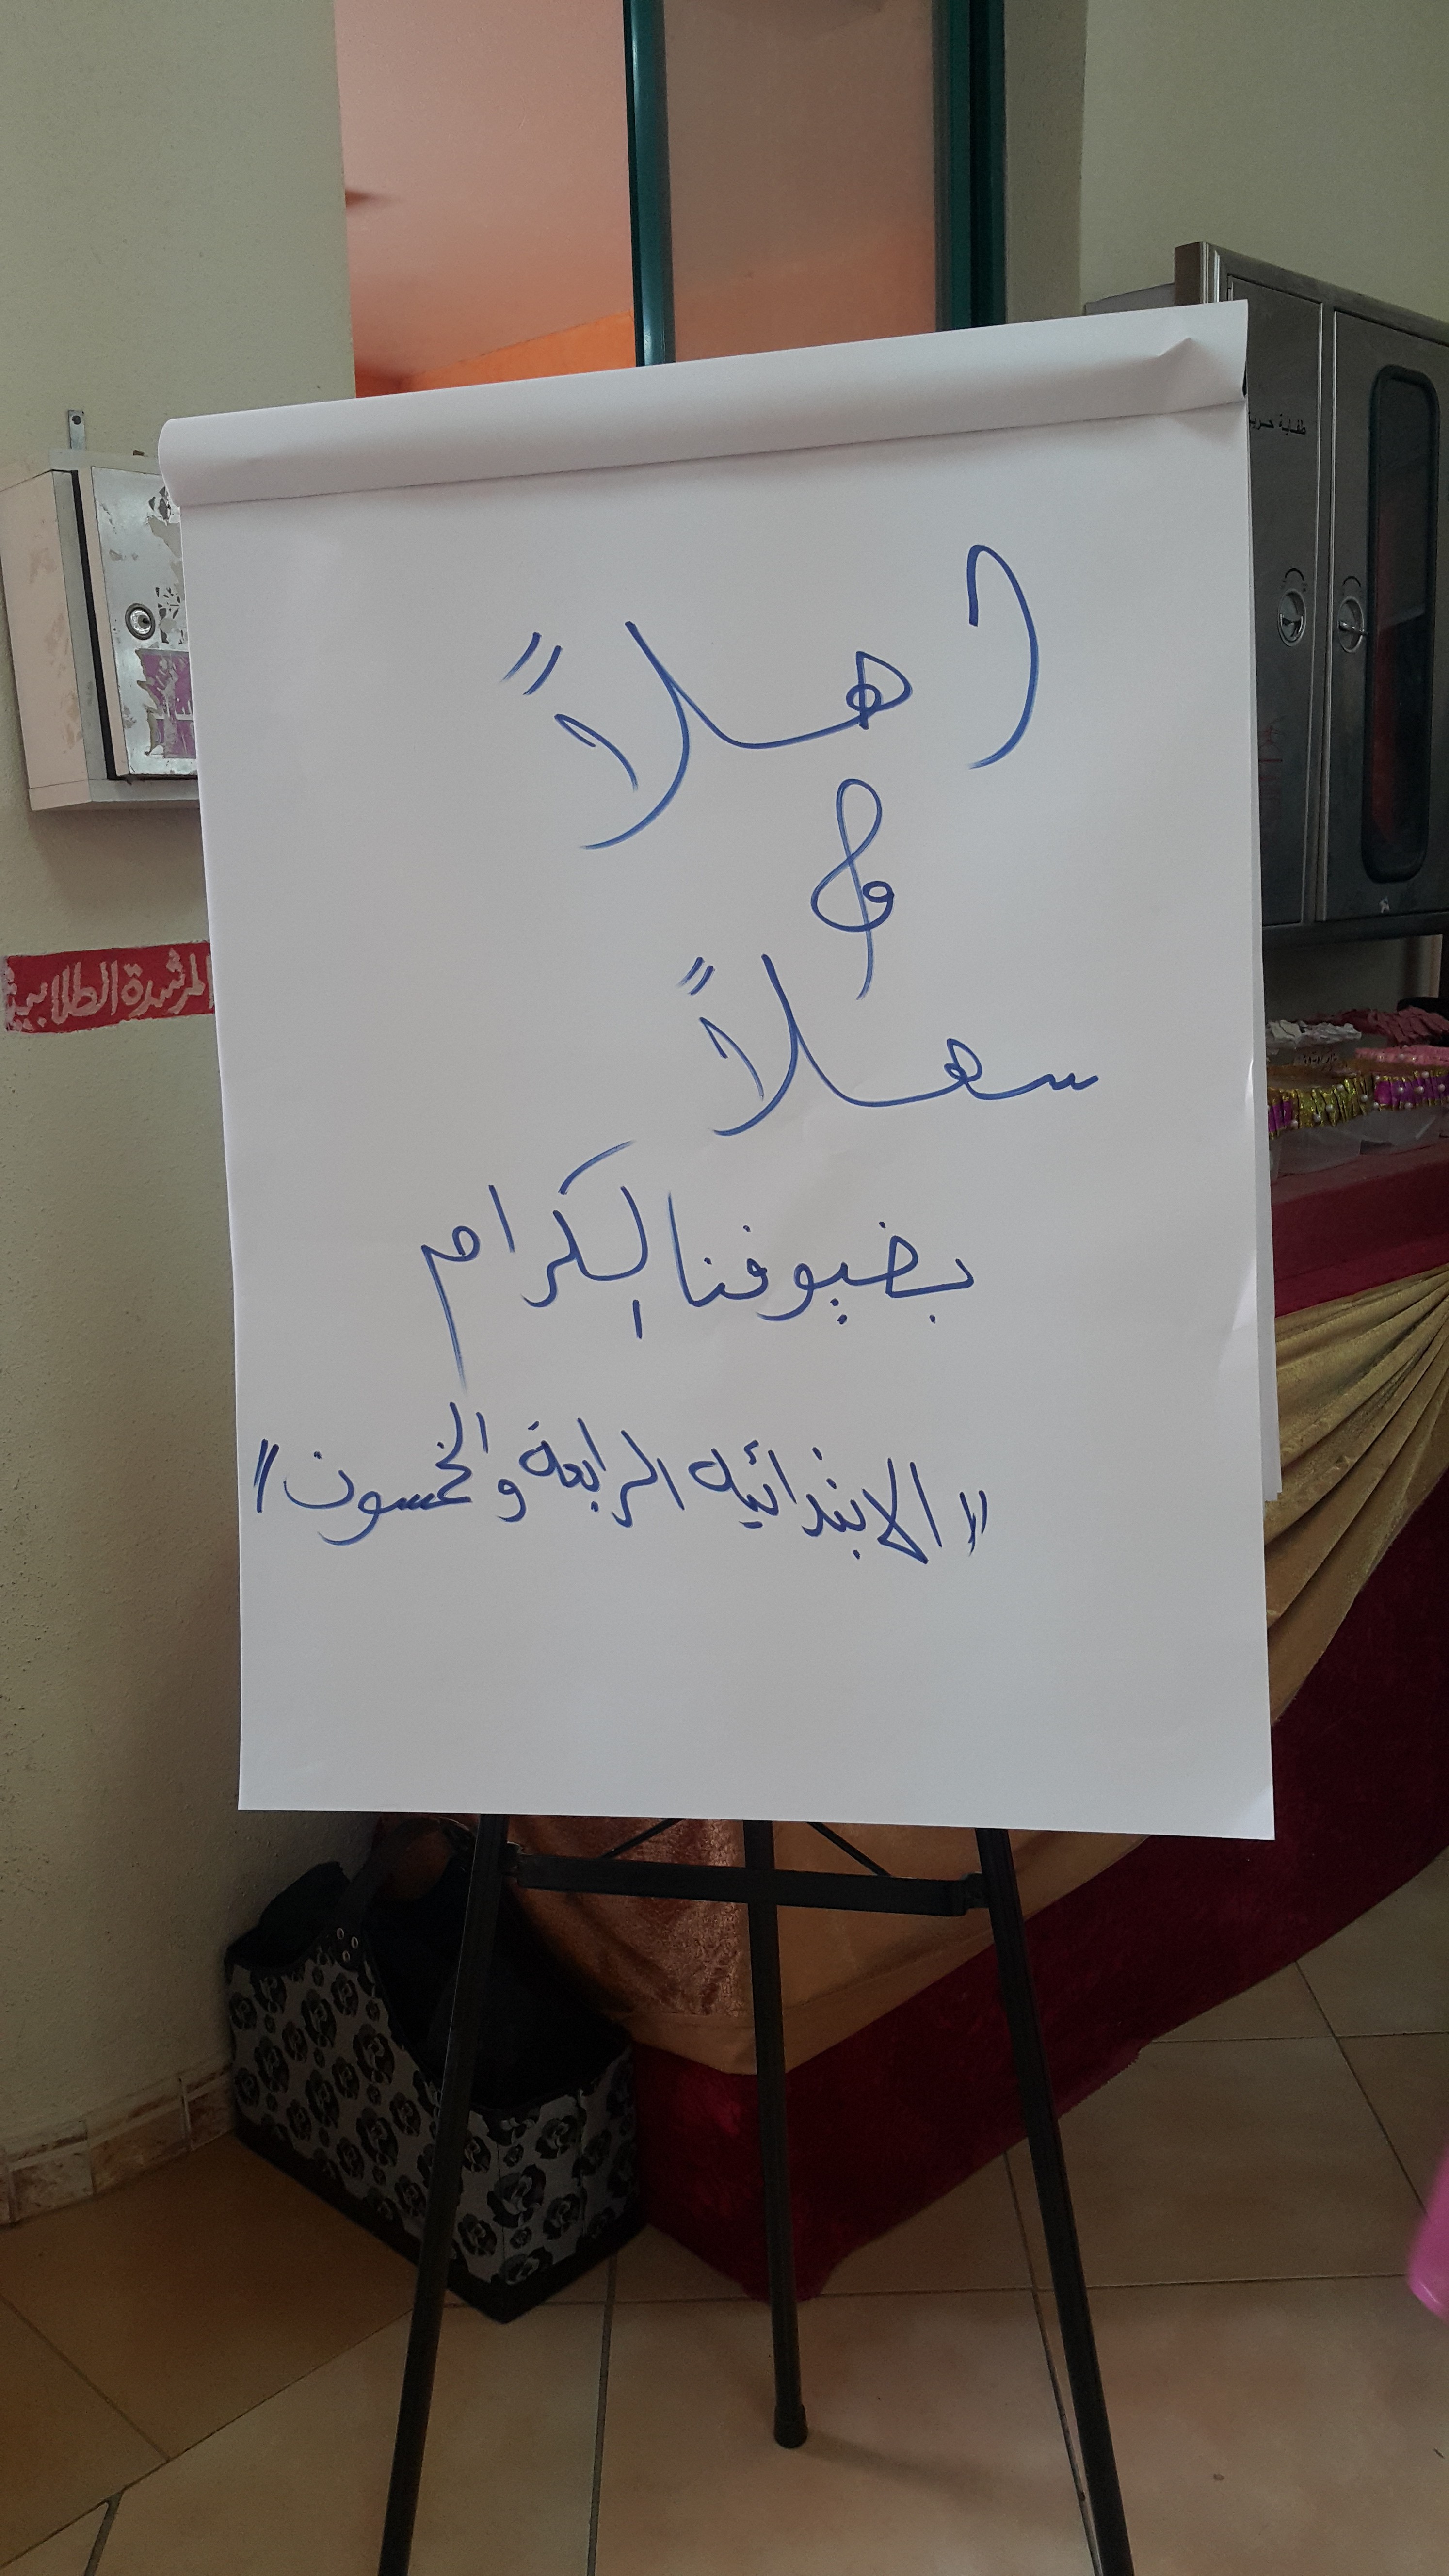 اهلاً
و
سهلاً
بضيوفنا الكرام
"الابتدائيه الرابعة والخمسون"
المرشدة الطلابية
طفاية حريق